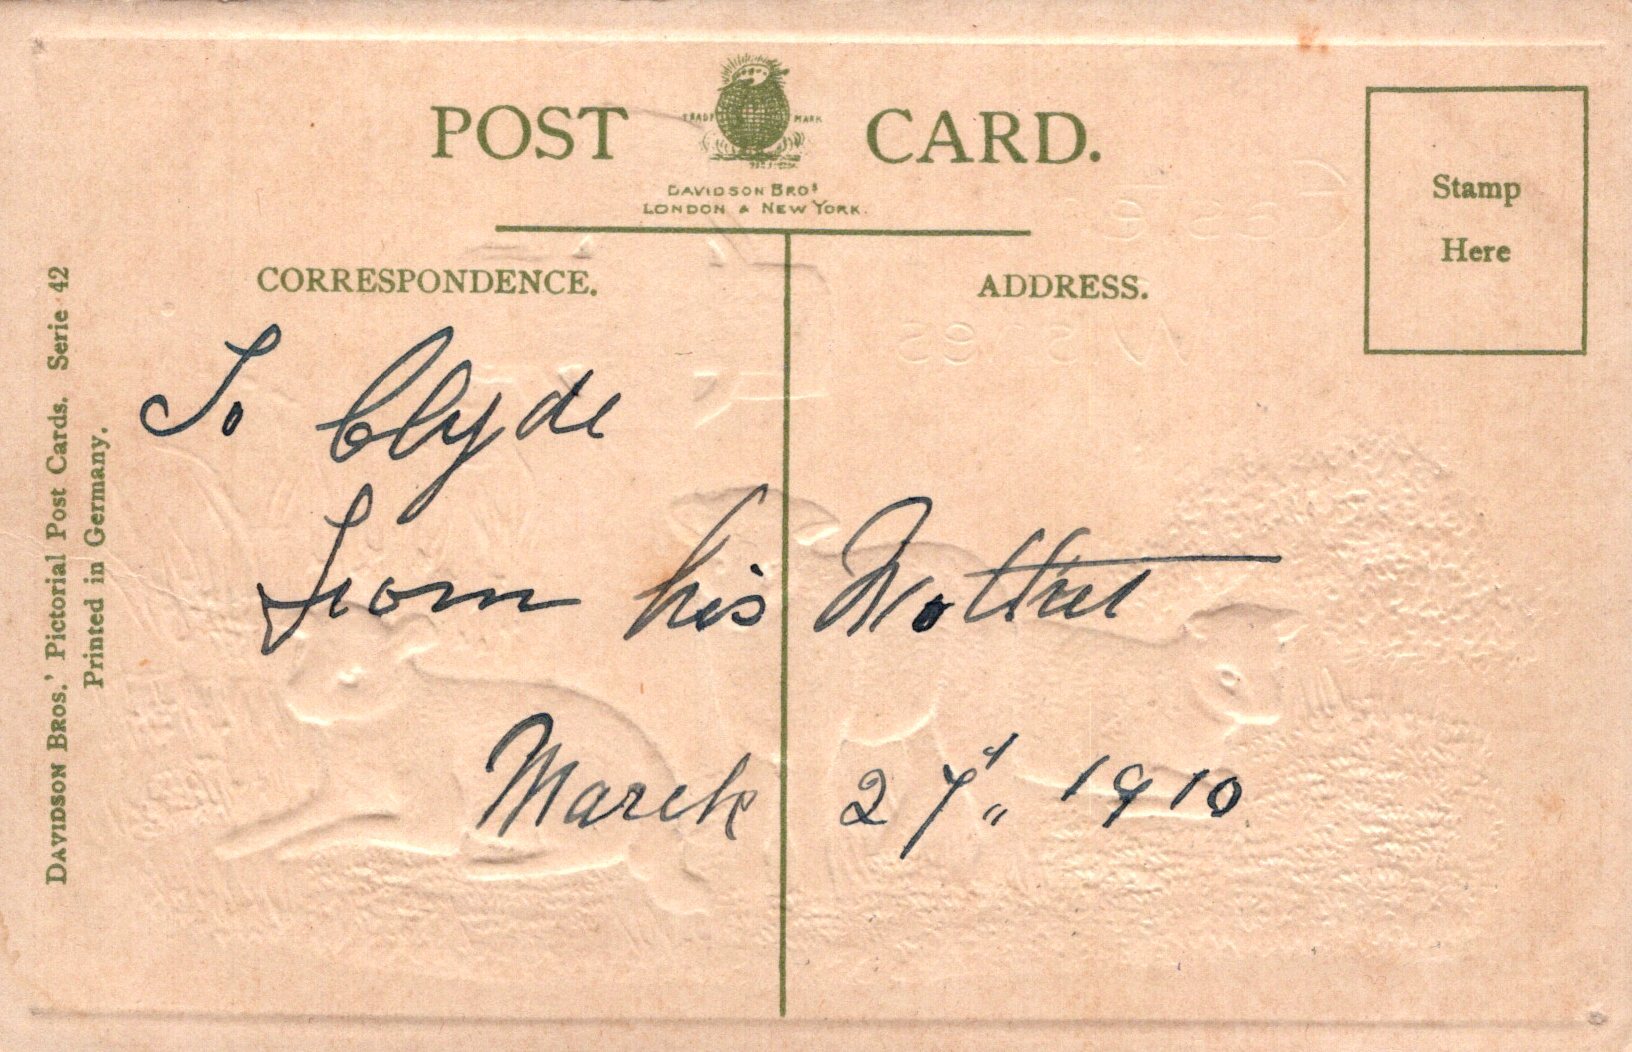 POST CARD.
TRADE MARK
DAVIDSON BROS
LONDON & NEW YORK.
Stamp
Here
CORRESPONDENCE.
ADDRESS.
To Clyde
from his Mother
March 27", 1910
DAVIDSON BROS.' Pictorial Post Cards. Serie 42
Printed in Germany.
Easter
Wishes